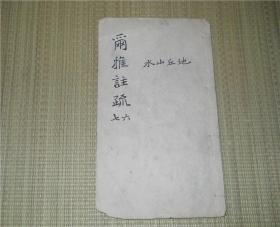 爾雅註疏
六七
地丘山水